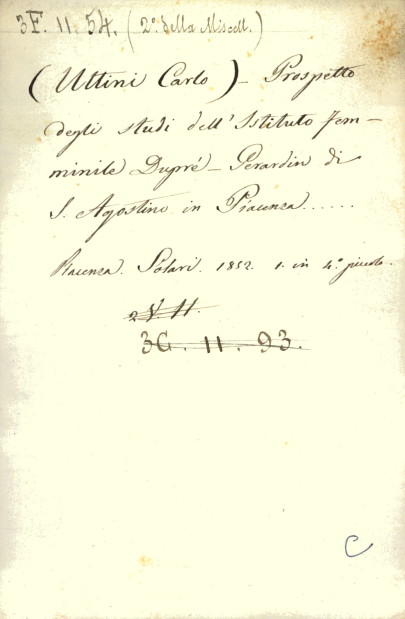 3F. 11. 54. (2º. della Miscell.)
(Uttini Carlo) – Prospetto
degli studi dell'Istituto fem–
minile Dupré – Perardin di
S. Agostino in Piacenza......
Piacenza. Solari. 1852. 1. in 4º. piccolo.
2V. 11.
3G. 11. 93.
C